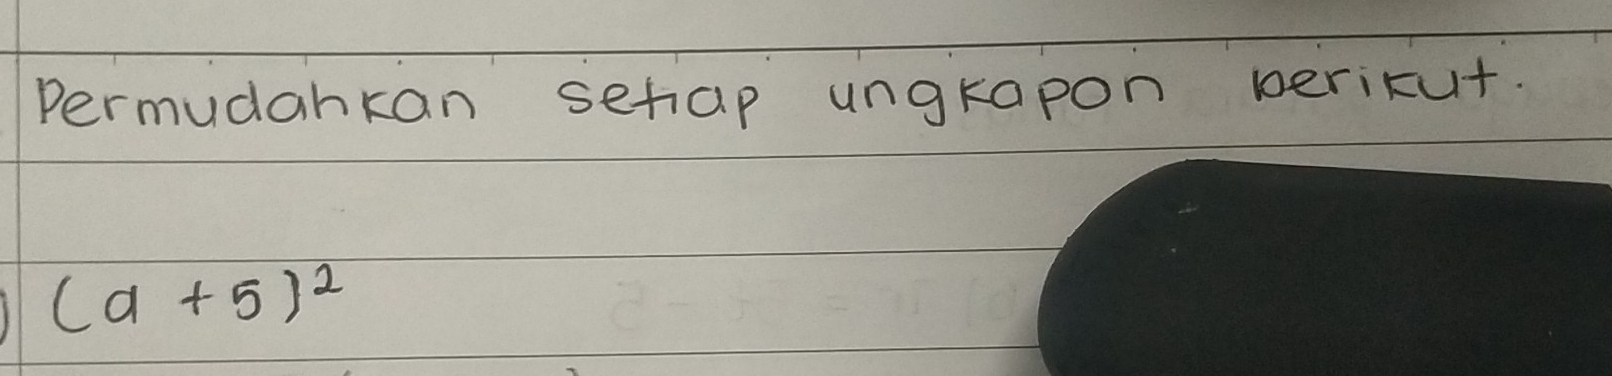 Permudahkan setiap ungkapan berikut.
(a + 5)²